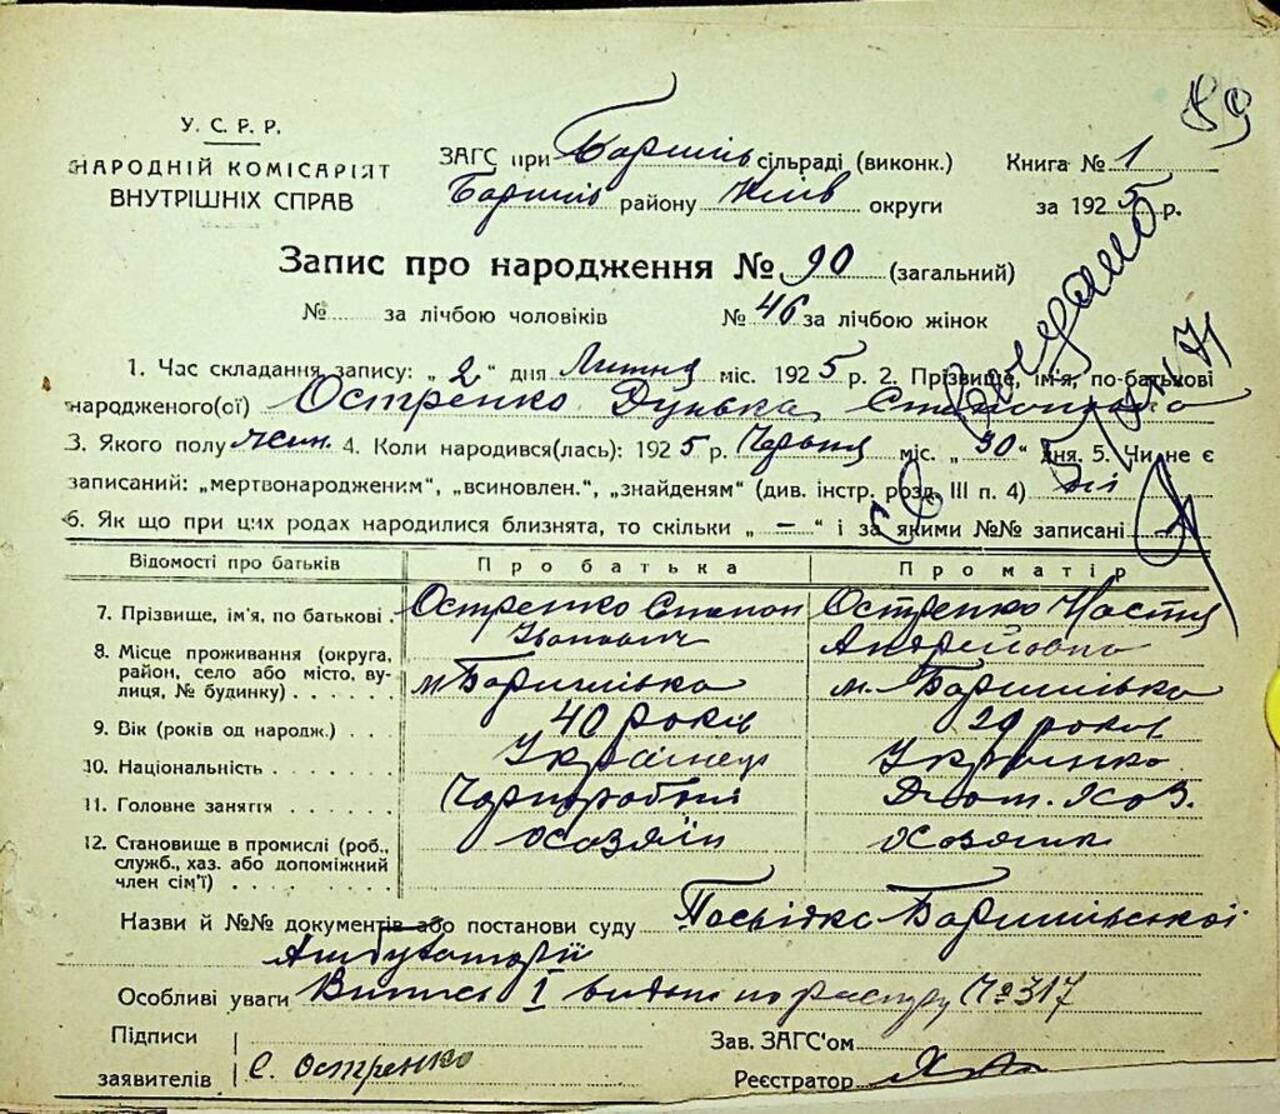 89
У. С. Р. Р.
НАРОДНІЙ КОМІСАРІЯТ
ВНУТРІШНІХ СПРАВ
ЗАГС при Баришів сільраді (виконк.) Книга № 1
Баришів району Київ округи за 1925 р.
Запис про народження № 90 (загальний)
№ за лічбою чоловіків № 46 за лічбою жінок
1. Час складання запису: „2" дня Лютня міс. 1925 р. 2. Прізвище, ім'я, по-батькові
народженого(ої) Остренко Дунька
3. Якого полу жін. 4. Коли народився(лась): 1925 р. міс. „30" дня. 5. Чи не є
записаний: „мертвонародженим", „всиновлен.", „знайденям" (див. інстр. розд. III п. 4) ні
6. Як що при цих родах народилися близнята, то скільки „—" і за якими №№ записані —
Відомості про батьків Про батька Про матір
7. Прізвище, ім'я, по батькові . Остренко Степан Остренко Настя
Іванович Андрейовна
8. Місце проживання (округа,
район, село або місто, ву-
лиця, № будинку) . . . . . м Баришівка м. Баришівка
9. Вік (років од народж.) . . . 40 років 29 років
10. Національність . . . . . . . Українець Українка
11. Головне заняття . . . . . . Чорноробочий Дом. хоз.
12. Становище в промислі (роб.,
служб., хаз. або допоміжний
член сім'ї) . . . . . . . . хозяїн хозяїн
Назви й №№ документів або постанови суду Посвідка Баришівської
Амбулаторії
Особливі уваги Випись I видан по № 317
Підписи
заявителів С. Остренко
Зав. ЗАГС'ом
Реєстратор